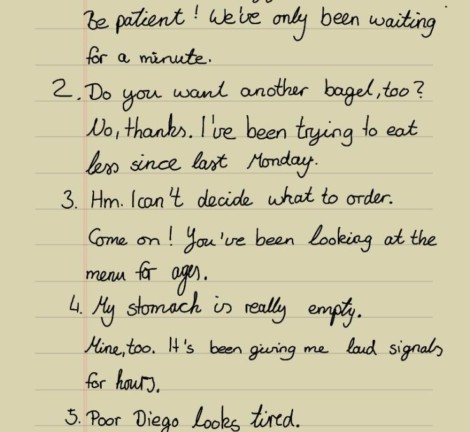 Be patient! We've only been waiting
for a minute.
2. Do you want another bagel, too?
No, thanks. I've been trying to eat
less since last Monday.
3. Hm. I can't decide what to order.
Come on! You've been looking at the
menu for ages.
4. My stomach is really empty.
Mine, too. It's been giving me loud signals
for hours.
5. Poor Diego looks tired.